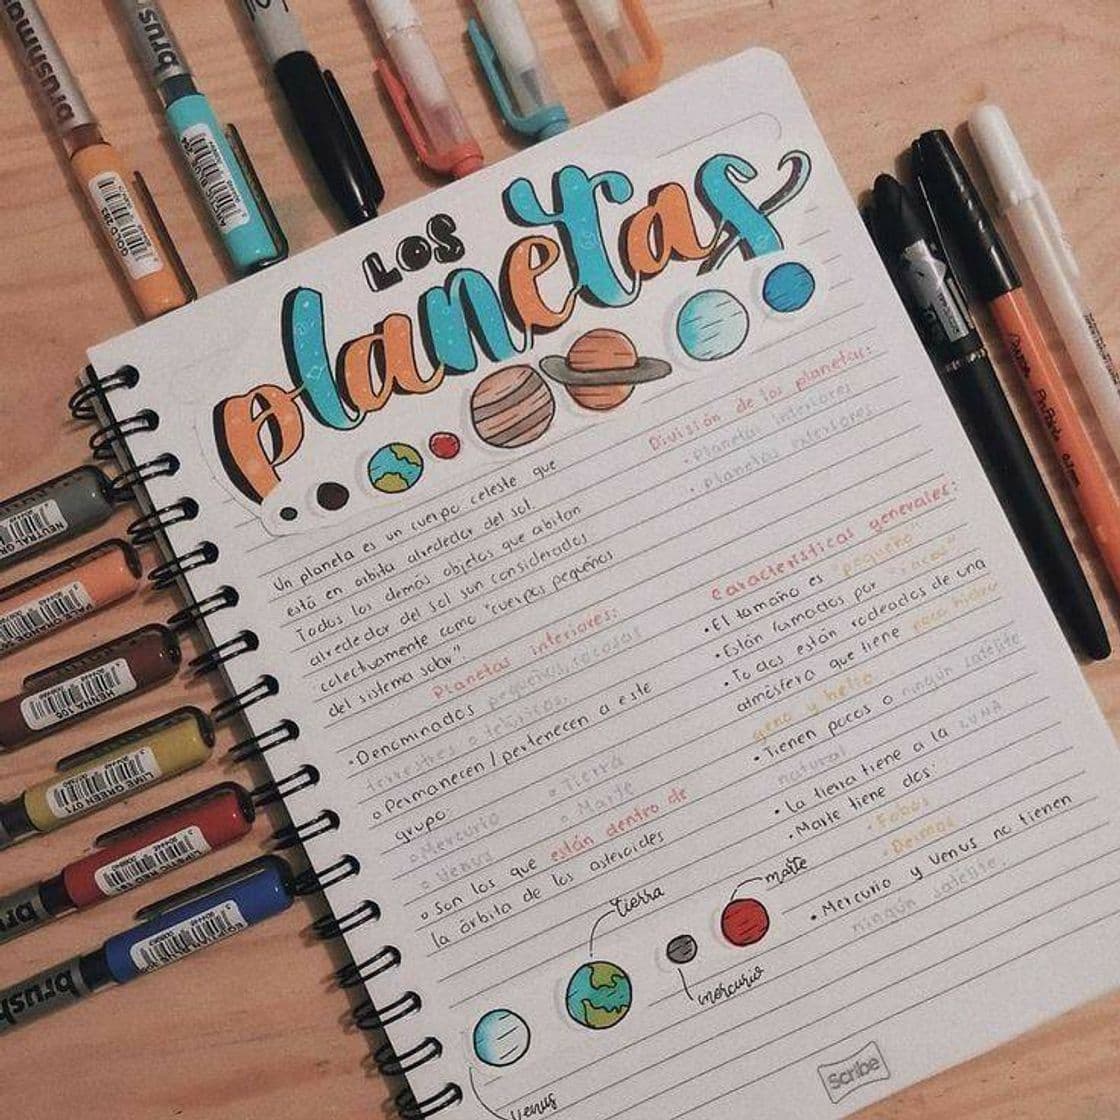 LOS
planetas
Un planeta es un cuerpo celeste que
está en orbita alrededor del sol.
Todos los demás objetos que orbitan
alrededor del sol son considerados
colectivamente como "cuerpos pequeños
del sistema solar".
Planetas interiores:
•Denominados pequeños, rocosos
terrestres o telúricos.
o Permanecen/pertenecen a este
grupo:
o Mercurio
o Venus
o Tierra
o Marte
o Son los que están dentro de
la órbita de los asteroides
División de los planetas:
•Planetas interiores
• Planetas exteriores
características generales:
•El tamaño es "pequeño"
•Están formados por "rocas"
•Todos están rodeados de una
atmósfera que tiene poco hidró
geno y helio
•Tienen pocos o ningún satélite
natural
• La tierra tiene a la LUNA
•Marte tiene dos:
•Fobos
•Deimos
• Mercurio y Venus no tienen
ningún satélite.
venus
tierra
mercurio
marte
Scribe
brushmar
GOLD 293
brus
NEUTRAL GR
HENNA 106
LIME GREEN 071
brush